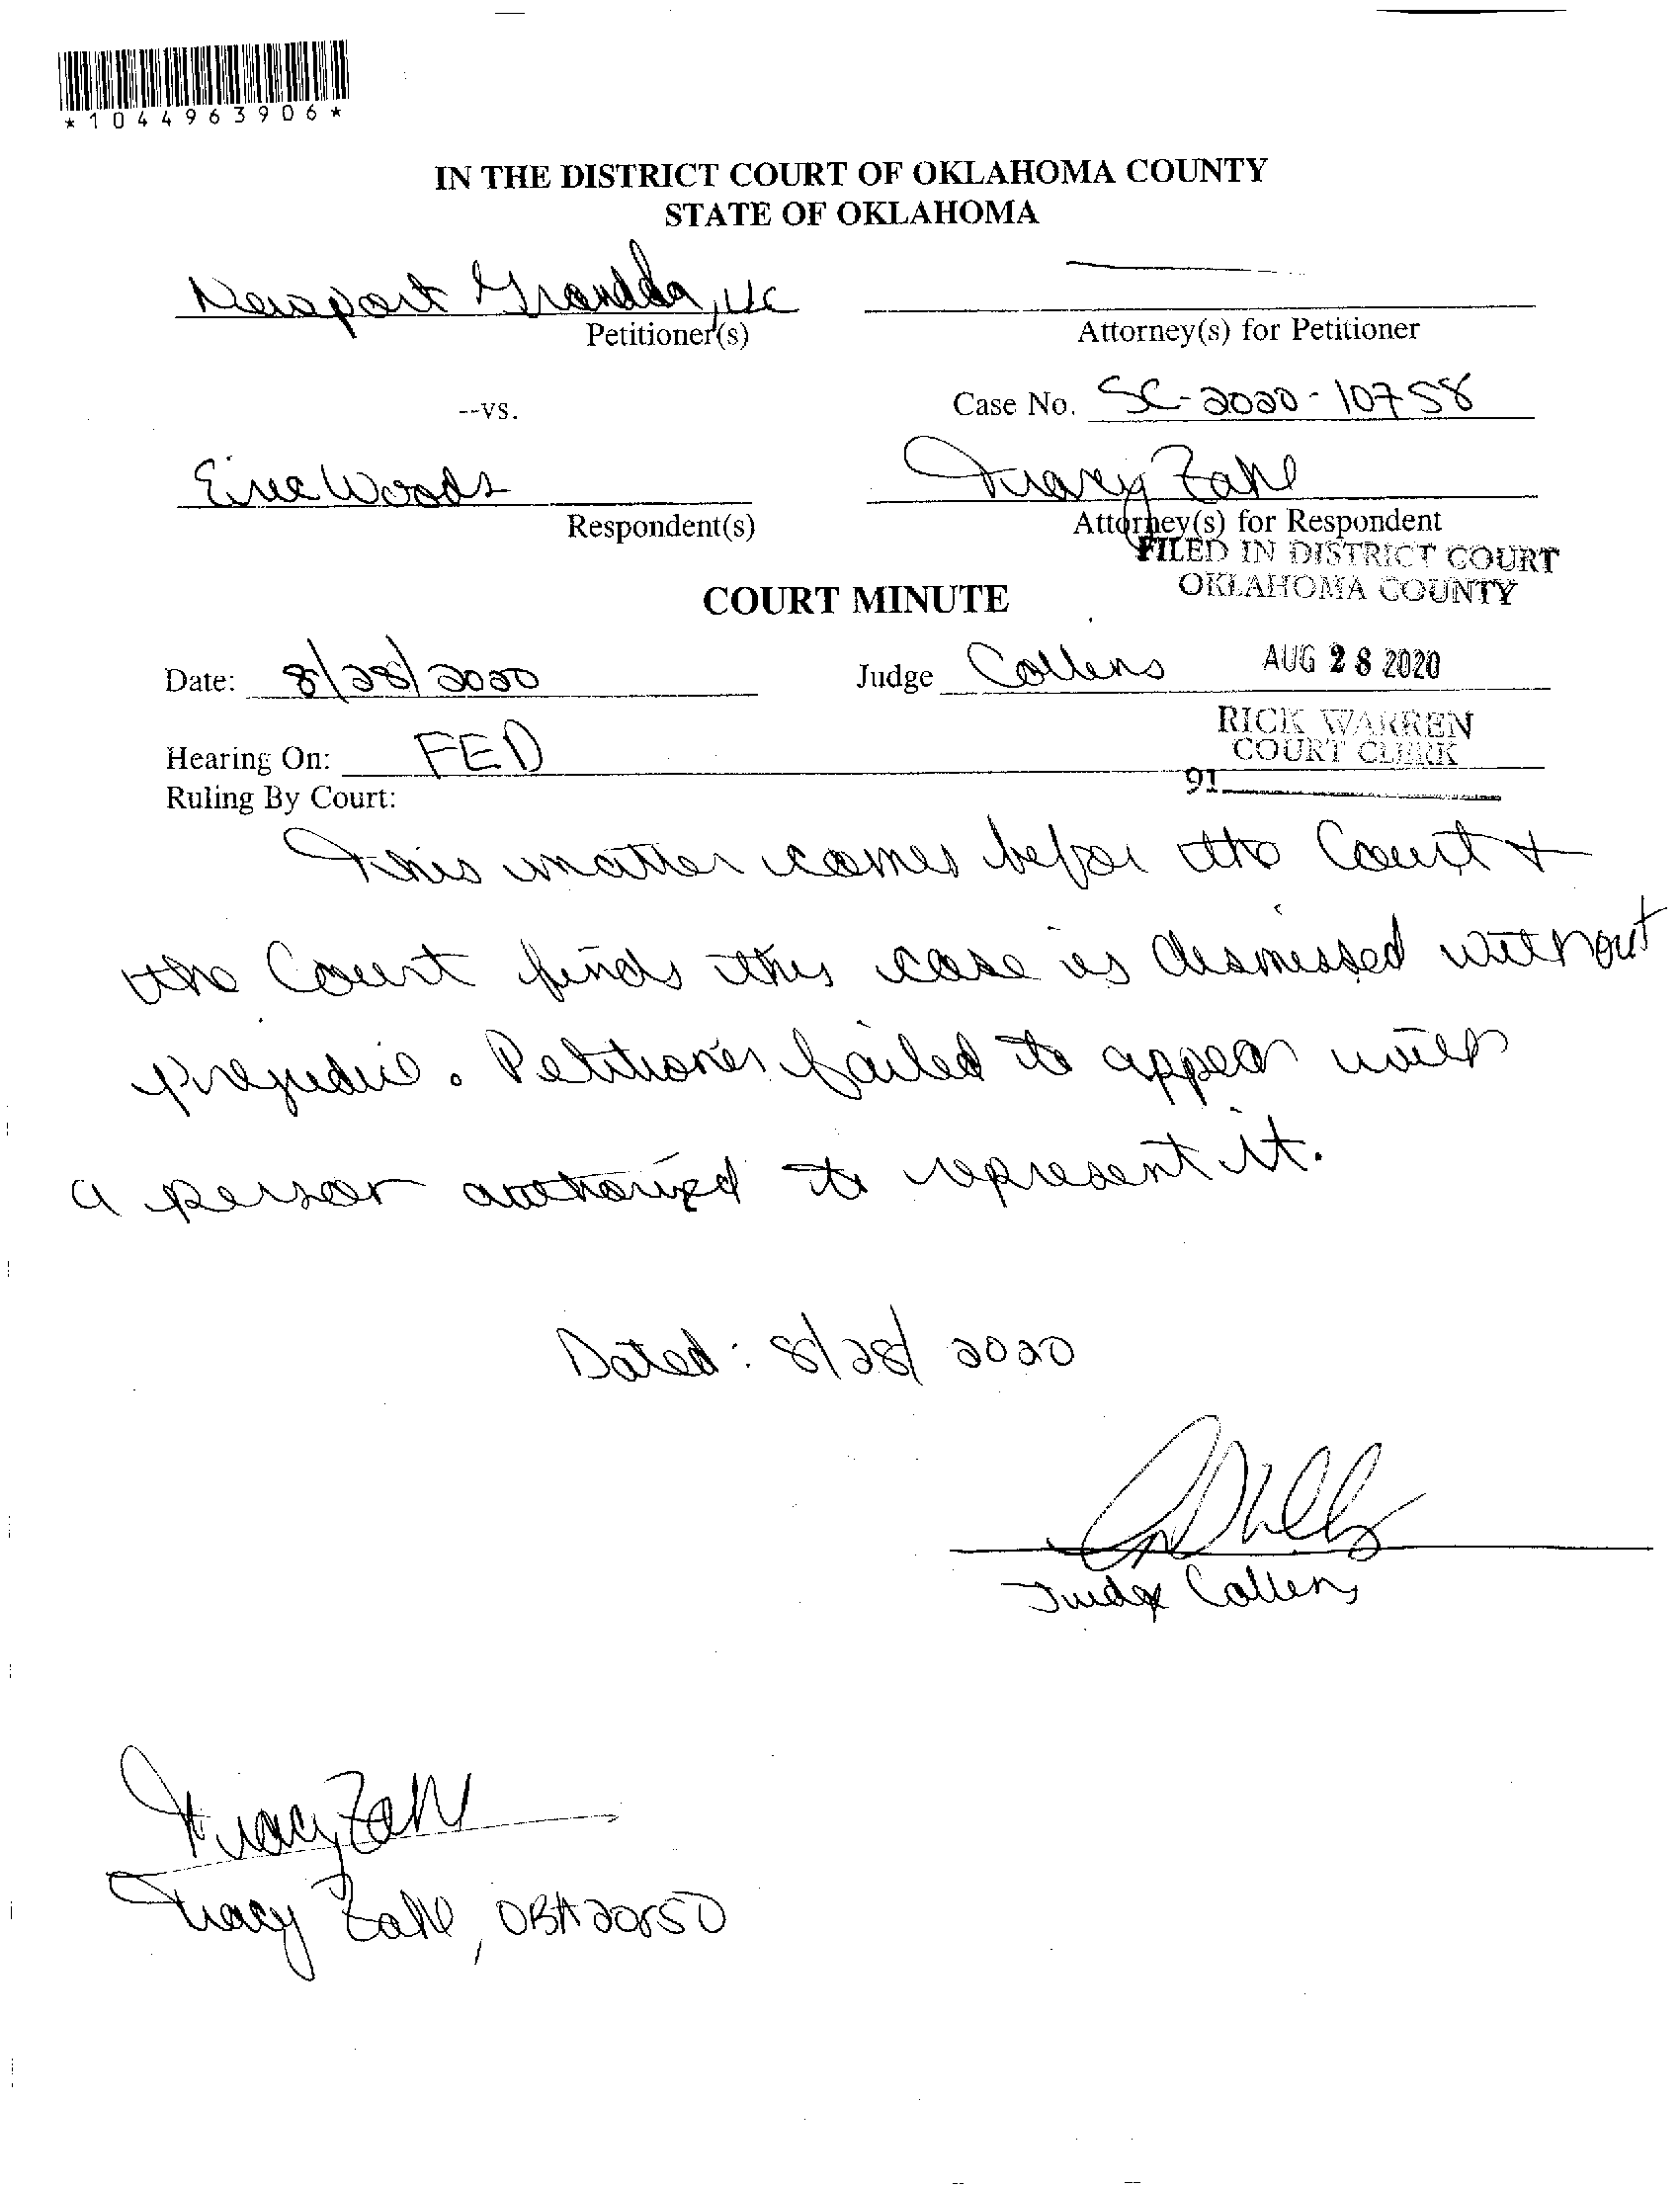 *1044963906*
IN THE DISTRICT COURT OF OKLAHOMA COUNTY
STATE OF OKLAHOMA
Newport Grandda, LLC
Petitioner(s)
Attorney(s) for Petitioner
--vs.
Case No. SC-2020-10758
Erica Woods
Respondent(s)
Tracy Zahl
Attorney(s) for Respondent
FILED IN DISTRICT COURT
OKLAHOMA COUNTY
COURT MINUTE
Date: 8/28/2020
Judge Collens
AUG 28 2020
RICK WARREN
COURT CLERK
Hearing On: FED
91
Ruling By Court:
This matter comes before the Court +
the Court finds this case is dismissed without
prejudice. Petitioner failed to appear with
a person authorized to represent it.
Dated: 8/28/2020
Judge Collens
Tracy Zahl
Tracy Zahl, OBA